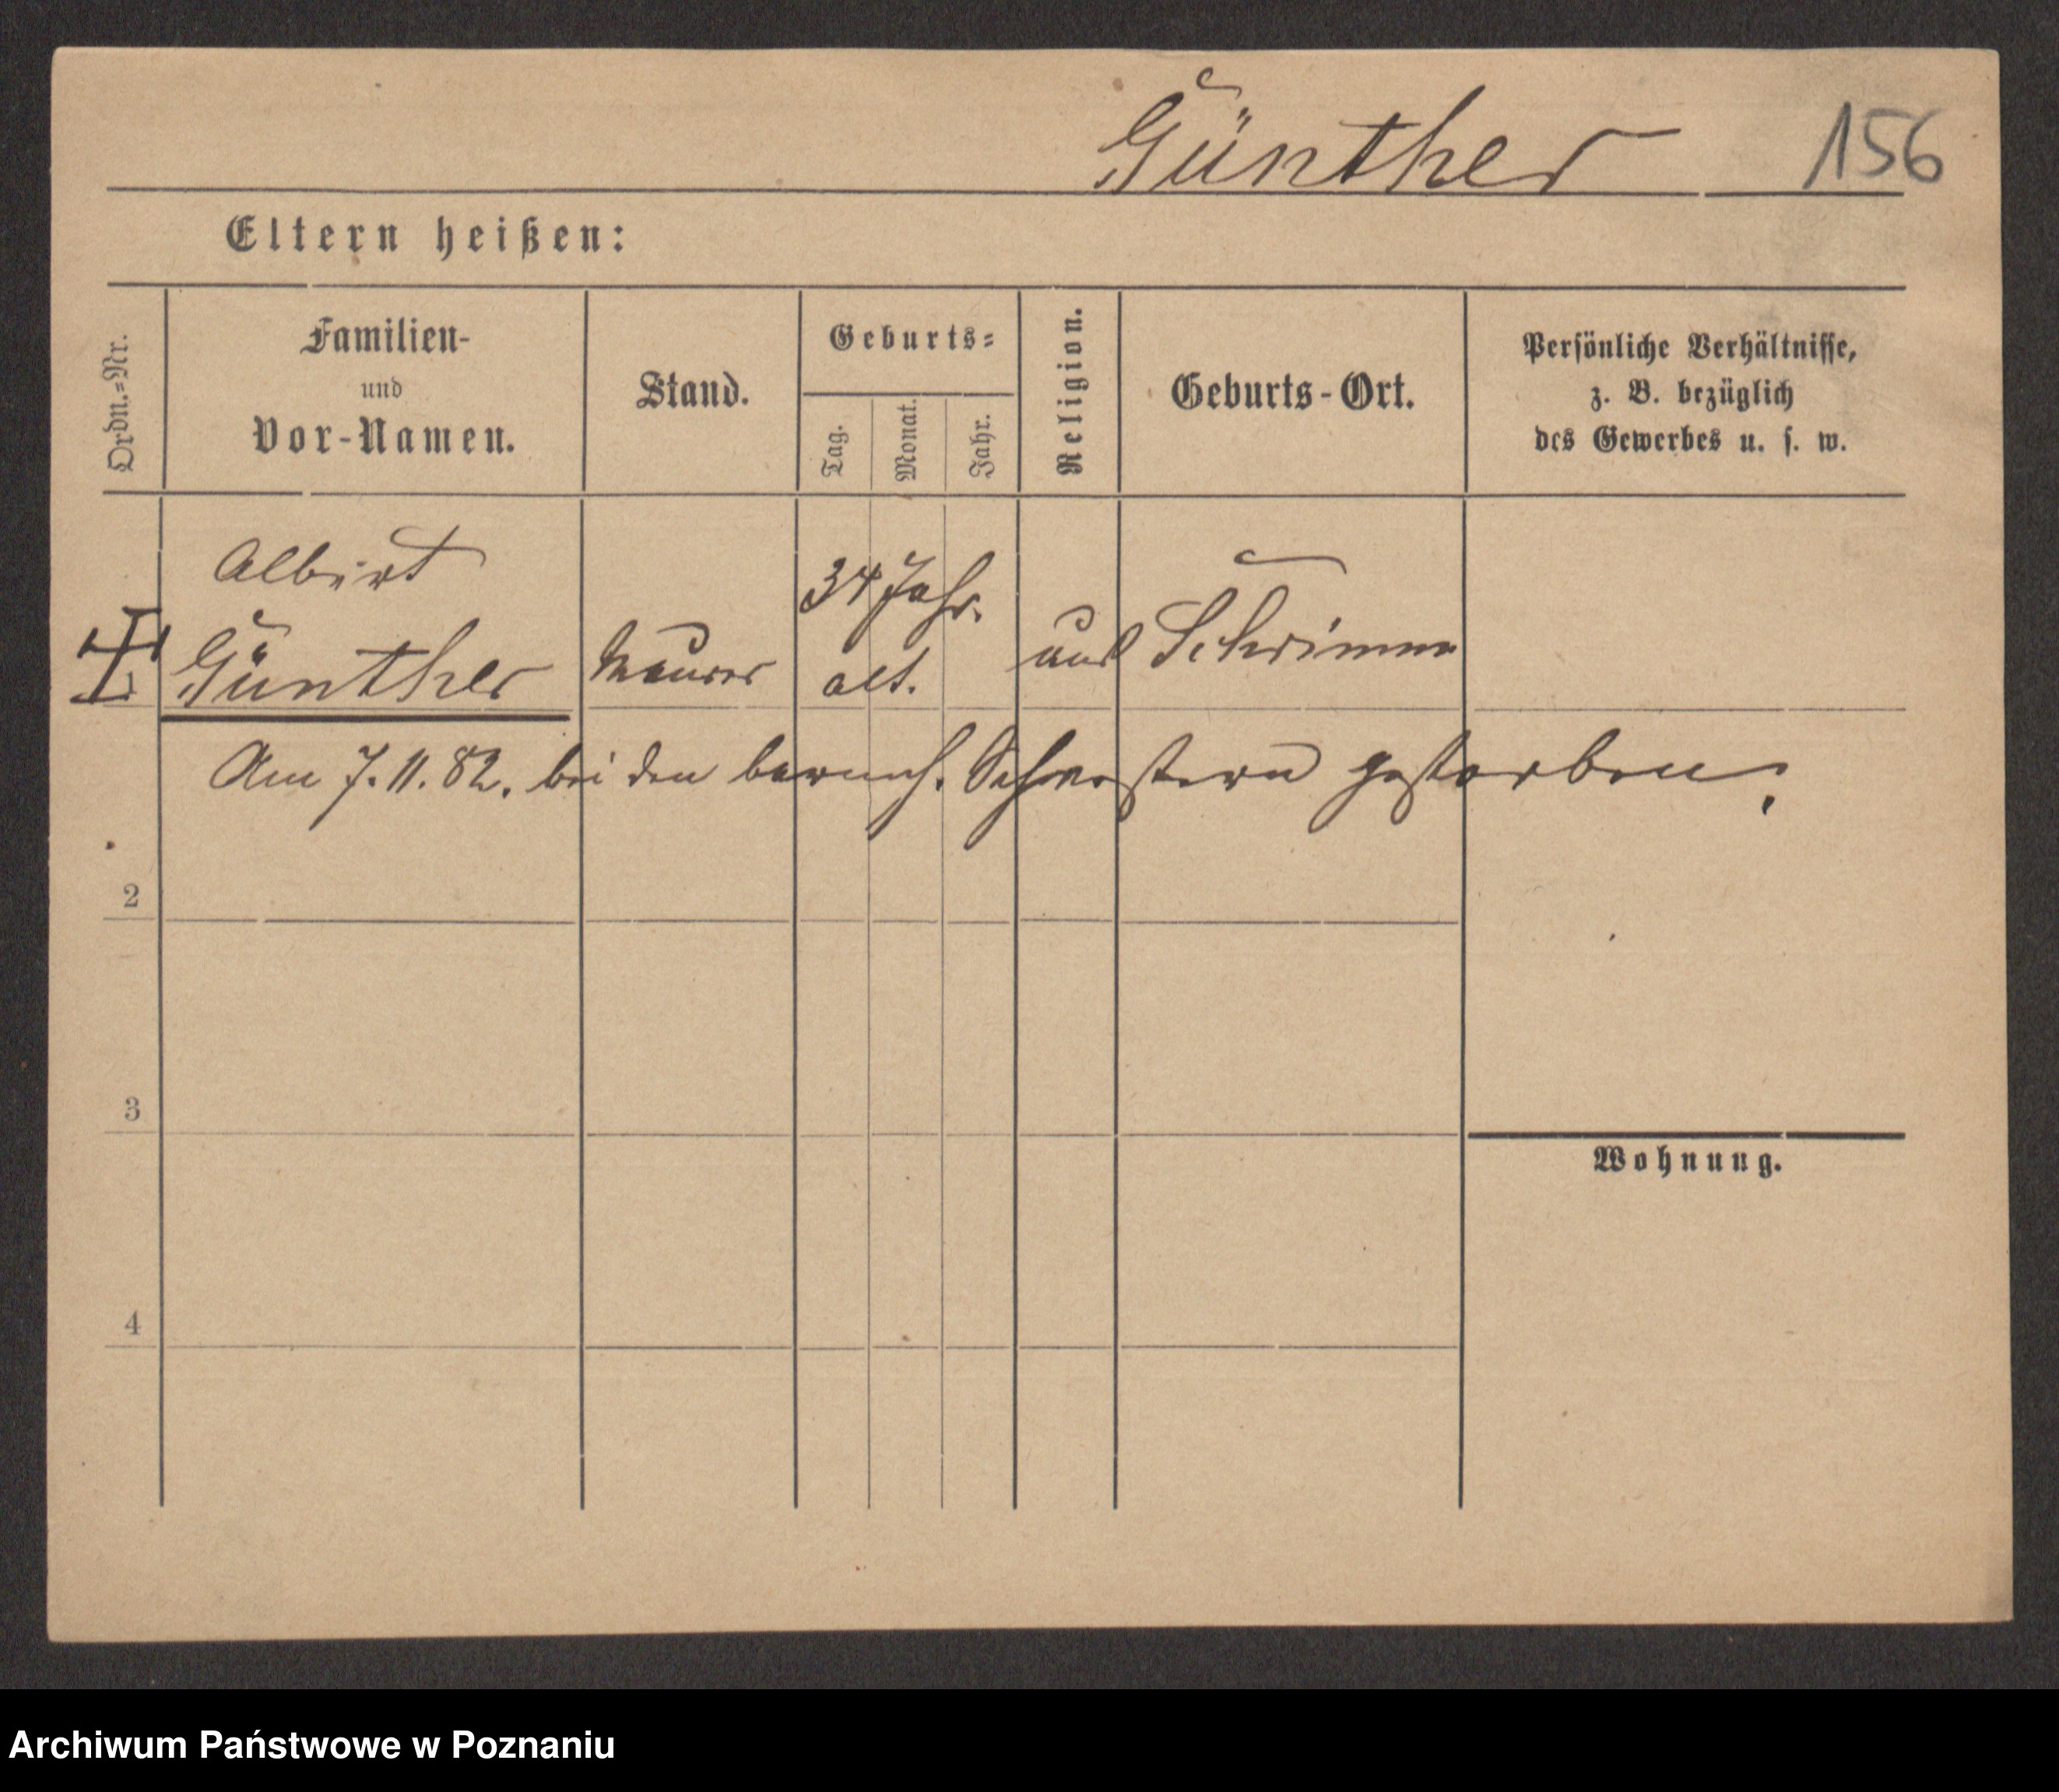 Günther 156
Eltern heißen:
Ordn.=Nr.
Familien-
und
Vor-Namen.
Stand.
Geburts=
Tag.
Monat.
Jahr.
Religion.
Geburts-Ort.
Persönliche Verhältnisse,
z. B. bezüglich
des Gewerbes u. s. w.
Albert
Günther
Maurer
34 Jahr.
alt.
aus Schrimm
Am 7. 11. 82. bei den barmh. Schwestern gestorben.
2
3
Wohnung.
4
Archiwum Państwowe w Poznaniu